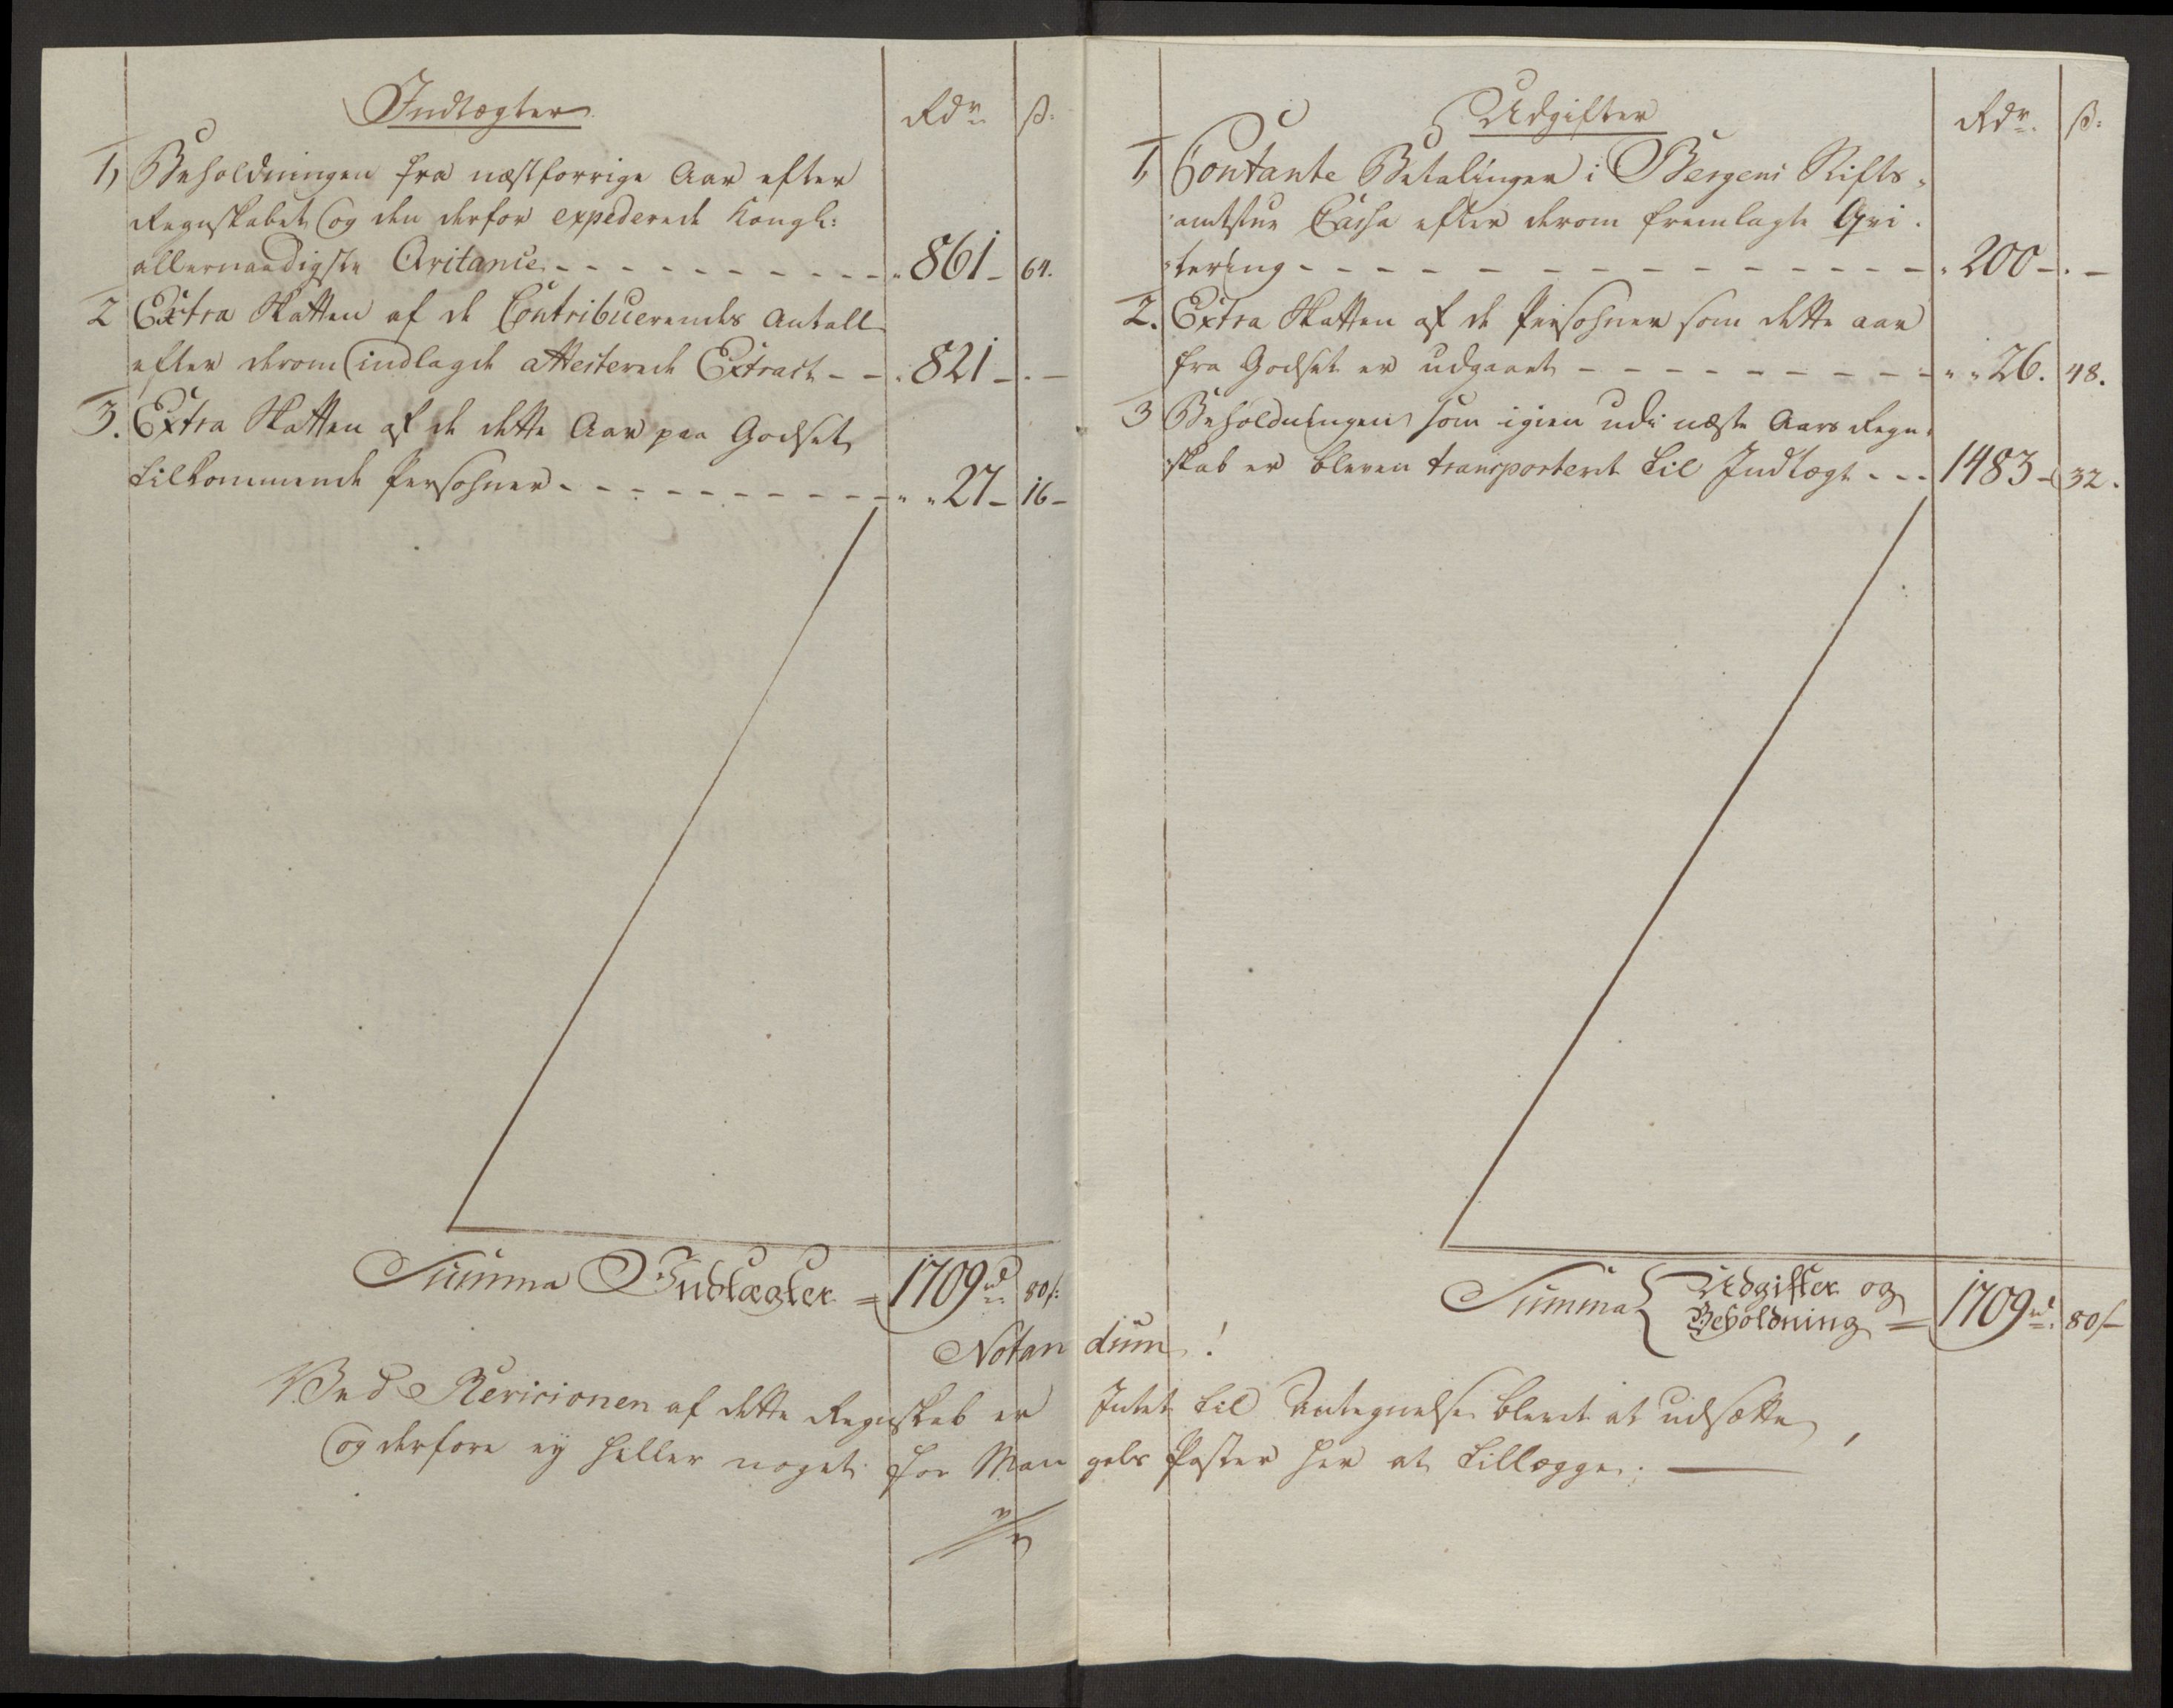 Indtægter Rdr ß:
1, Beholdningen fra næstforrige Aar efter
Regnskabet og den derfor expederede Kongl:
allernaadigste Qvitance - - - - - - - - - - - 861 - 64.
2 Extra Skatten af de Contribuerendes Antall
efter derom indlagde attesterede Extract - - 821 - . -
3. Extra Skatten af de dette Aar paa Godset
tilkommende Persohner - - - - - - - - - - - 27 - 16 -
Summa Indtægter = 1709 rd 80 ß:
Udgifter Rdr. ß:
1, Contante Betalinger i Bergens Stifts-
amtstue Cassa efter derom fremlagte Qvi-
tering - - - - - - - - - - - - - 200 - . -
2. Extra Skatten af de Persohner som dette aar
fra Godset er udgaaet - - - - - - - - - - 26. 48.
3 Beholdningen som igien udi næste Aars Regn-
skab er bleven transporteret til Indtægt - - - 1483 - 32.
Summa { Udgifter og
Beholdning = 1709 rd. 80 ß
Notandum!
Ved Revisionen af dette Regnskab er Intet til Antegnelse blevet at udsætte,
og derfore ej heller noget for Mangels Poster her at tillægge. —